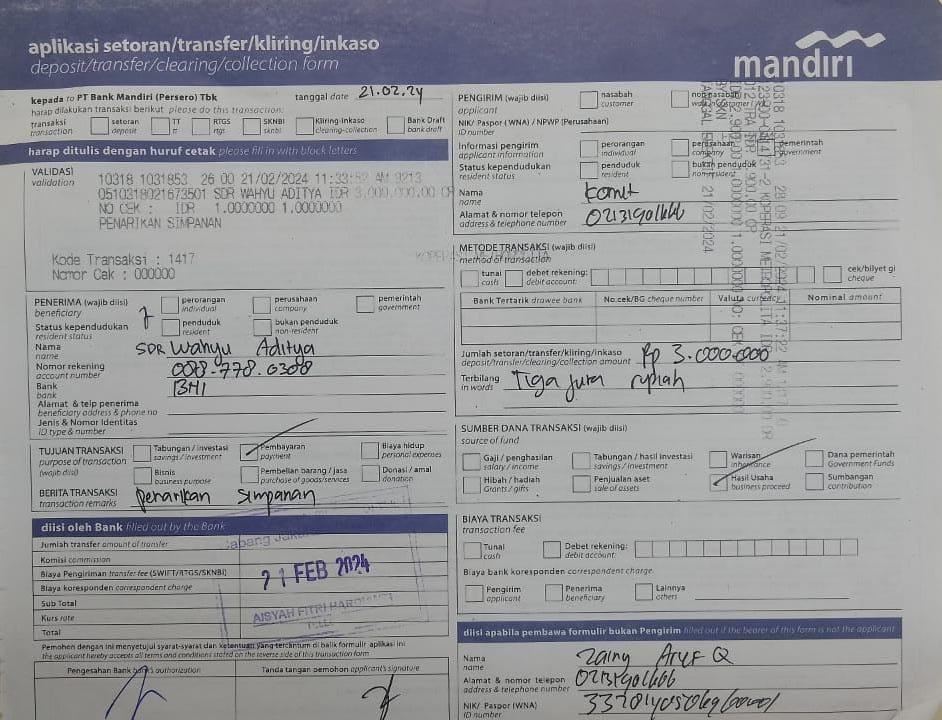 aplikasi setoran/transfer/kliring/inkaso
deposit/transfer/clearing/collection form
mandiri
kepada to PT Bank Mandiri (Persero) Tbk
tanggal date 21.02.24
harap dilakukan transaksi berikut please do this transaction:
transaksi transaction
setoran deposit
TT tt
RTGS rtgs
SKNBI sknbi
Kliring-Inkaso clearing-collection
Bank Draft bank draft
harap ditulis dengan huruf cetak please fill in with block letters
VALIDASI
validation
10318 1031853 26 00 21/02/2024 11:33:52 AM 9213
0510318021673501 SDR WAHYU ADITYA IDR 3,000,000.00 CR
NO CEK : IDR 1.0000000 1.0000000
PENARIKAN SIMPANAN
Kode Transaksi : 1417
Nomor Cek : 000000
PENERIMA (wajib diisi)
beneficiary
perorangan individual
perusahaan company
pemerintah government
Status kependudukan
resident status
penduduk resident
bukan penduduk non-resident
Nama SDR Wahyu Aditya
name
Nomor rekening
account number
Bank BNI
bank
Alamat & telp penerima
beneficiary address & phone no
Jenis & Nomor Identitas
ID type & number
TUJUAN TRANSAKSI
purpose of transaction
(wajib diisi)
Tabungan / investasi savings / investment
Pembayaran payment
Biaya hidup personal expenses
Bisnis business purpose
Pembelian barang / jasa purchase of goods/services
Donasi / amal donation
BERITA TRANSAKSI penarikan simpanan
transaction remarks
diisi oleh Bank filled out by the Bank
Jumlah transfer amount of transfer
Komisi commission
Biaya Pengiriman transfer fee (SWIFT/RTGS/SKNBI)
Biaya koresponden correspondent charge
Sub Total
Kurs rate
Total
21 FEB 2024
AISYAH FITRI
Pemohon dengan ini menyetujui syarat-syarat dan ketentuan yang tercantum di balik formulir aplikasi ini
the applicant hereby accepts all terms and conditions stated on the reverse side of this transaction form
Pengesahan Bank bank's authorization
Tanda tangan pemohon applicant's signature
PENGIRIM (wajib diisi)
applicant
nasabah customer
NIK/ Paspor (WNA) / NPWP (Perusahaan)
ID number
Informasi pengirim
applicant information
perorangan individual
perusahaan company
pemerintah government
Status kependudukan
resident status
penduduk resident
bukan penduduk non-resident
Nama
name
Alamat & nomor telepon
address & telephone number
METODE TRANSAKSI (wajib diisi)
method of transaction
tunai cash
debet rekening: debit account:
cek/bilyet gi cheque
Bank Tertarik drawee bank
No.cek/BG cheque number
Valuta currency
Nominal amount
Jumlah setoran/transfer/kliring/inkaso Rp 3.000.000
deposit/transfer/clearing/collection amount
Terbilang Tiga juta rupiah
in words
SUMBER DANA TRANSAKSI (wajib diisi)
source of fund
Gaji / penghasilan salary / income
Tabungan / hasil investasi savings / investment
Warisan inheritance
Dana pemerintah Government Funds
Hibah / hadiah Grants / gifts
Penjualan aset sale of assets
Hasil Usaha business proceed
Sumbangan contribution
BIAYA TRANSAKSI
transaction fee
Tunai cash
Debet rekening: debit account:
Biaya bank koresponden correspondent charge
Pengirim applicant
Penerima beneficiary
Lainnya others
diisi apabila pembawa formulir bukan Pengirim filled out if the bearer of this form is not the applicant
Nama Zainy Aryf Q
name
Alamat & nomor telepon
address & telephone number
NIK/ Paspor (WNA)
ID number